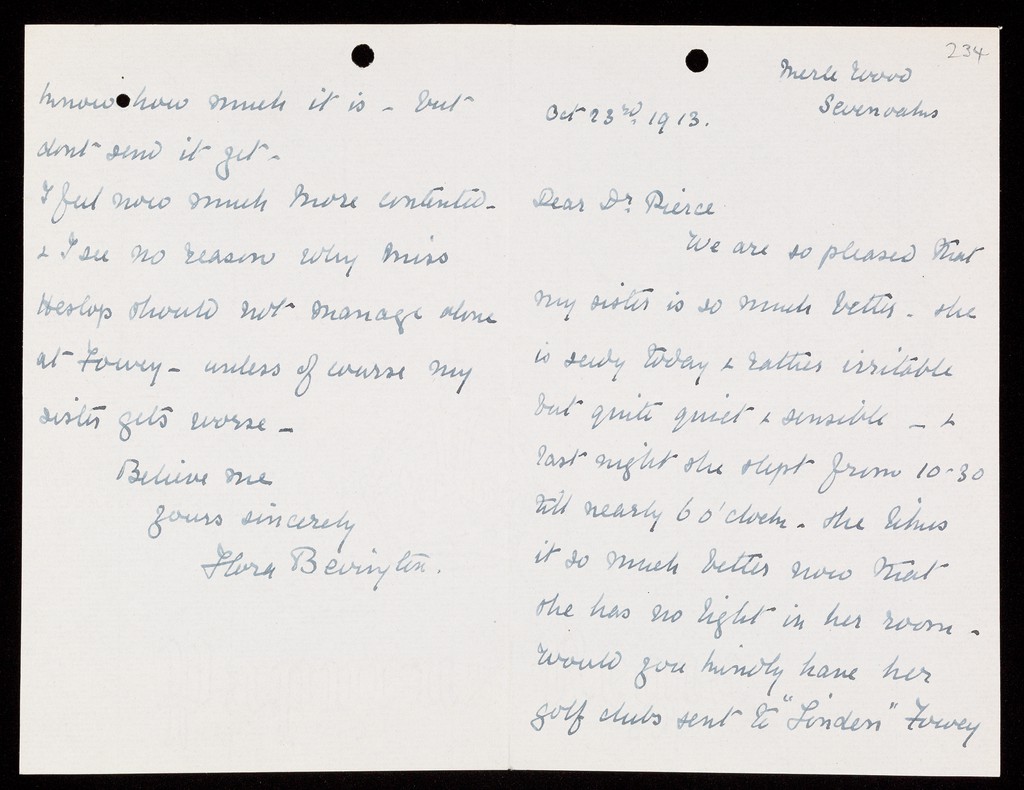 234
Merle Wood
Sevenoaks
Oct 23rd. 1913.
Dear Dr. Pierce
We are so pleased that
my sister is so much better - she
is seedy today & rather irritable
but quite quiet & sensible - &
last night she slept from 10-30
till nearly 6 o'clock - she likes
it so much better now that
she has no light in her room -
Would you kindly have her
golf clubs sent to "Linden" Fowey
know how much it is - but
dont send it yet -
I feel now much more contented -
& I see no reason why Miss
Heslop should not manage alone
at Fowey - unless of course my
sister gets worse -
Believe me
yours sincerely
Flora Bevington.